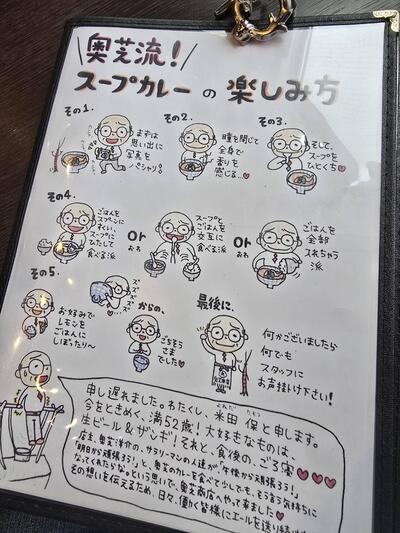 奥芝流!
スープカレーの楽しみ方
その1.
まずは
思い出に
写真を
パシャリ♪
その2.
瞳を閉じて
全身で
香りを
感じる…♥
その3.
そして、
スープを
ひとくち♥
その4.
ごはんを
スプーンに
すくい、
スープに
ひたして
食べる派
or
スープと
ごはんを
交互に
食べる派
or
ごはんを
全部
入れちゃう
派
その5.
お好みで
レモンを
ごはんに
しぼったり〜
ズズズズ
からの、
ごちそう
さま
でした♥
最後に.
何かございましたら
何でも
スタッフに
お声掛け下さい!
申し遅れました。わたくし、米田 保と申します。
今をときめく、満52歳!大好きなものは、
生ビール&ザンギ!それと、食後の、ごろ寝♥♥♥
店主、奥芝洋介の、サラリーマンの人達が「午後から頑張ろう!」
「明日から頑張ろう!」と、奥芝のカレーを食べて少しでも、そう言う気持ちに
なってくれたらな。という思いで、奥芝商店へやって来ました♡
その想いを伝えるため、日々、働く皆様にエールを送り続け